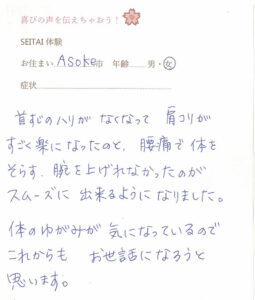 喜びの声を伝えちゃおう！
SEITAI 体験
お住まい Asoke市 年齢 男・女
症状
首すじのハリがなくなって 肩コリが
すごく楽になったのと、腰痛で体を
そらす、腕を上げれなかったのが
スムーズに出来るようになりました。
体のゆがみが気になっているので
これからも お世話になろうと
思います。